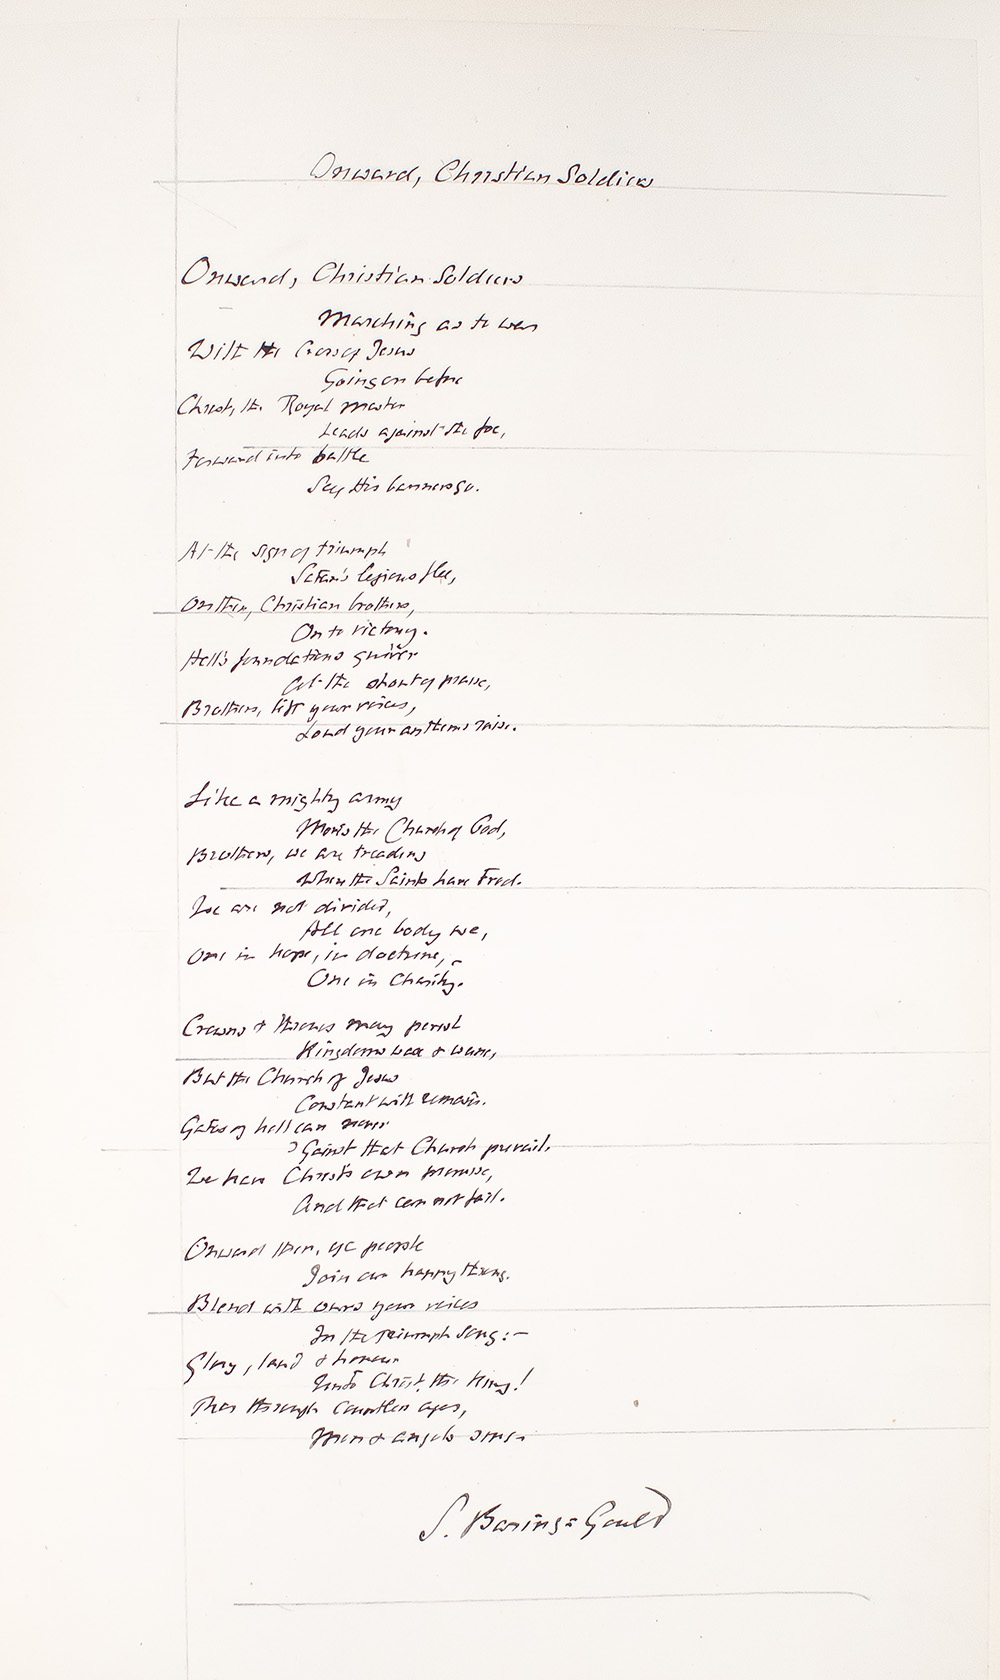 Onward, Christian Soldiers
Onward, Christian Soldiers
Marching as to war
With the Cross of Jesus
Going on before
Christ, the Royal Master
Leads against the foe,
Forward into battle
See, His banners go.
At the sign of triumph
Satan's legions flee,
On then, Christian brothers,
On to victory.
Hell's foundations quiver
At the shout of praise,
Brothers, lift your voices,
Loud your anthems raise.
Like a mighty army
Moves the Church of God,
Brothers, we are treading
Where the Saints have Trod.
We are not divided,
All one body we,
One in hope, in doctrine,
One in Charity.
Crowns & thrones may perish
Kingdoms wax & wane,
But the Church of Jesus
Constant will remain.
Gates of hell can never
'Gainst that Church prevail.
We have Christ's own promise,
And that can not fail.
Onward then, ye people
Join our happy throng.
Blend with ours your voices
In the triumph Song:—
Glory, laud & honour
Unto Christ, the King!
This through Countless ages,
Men & angels sing.
S. Baring=Gould